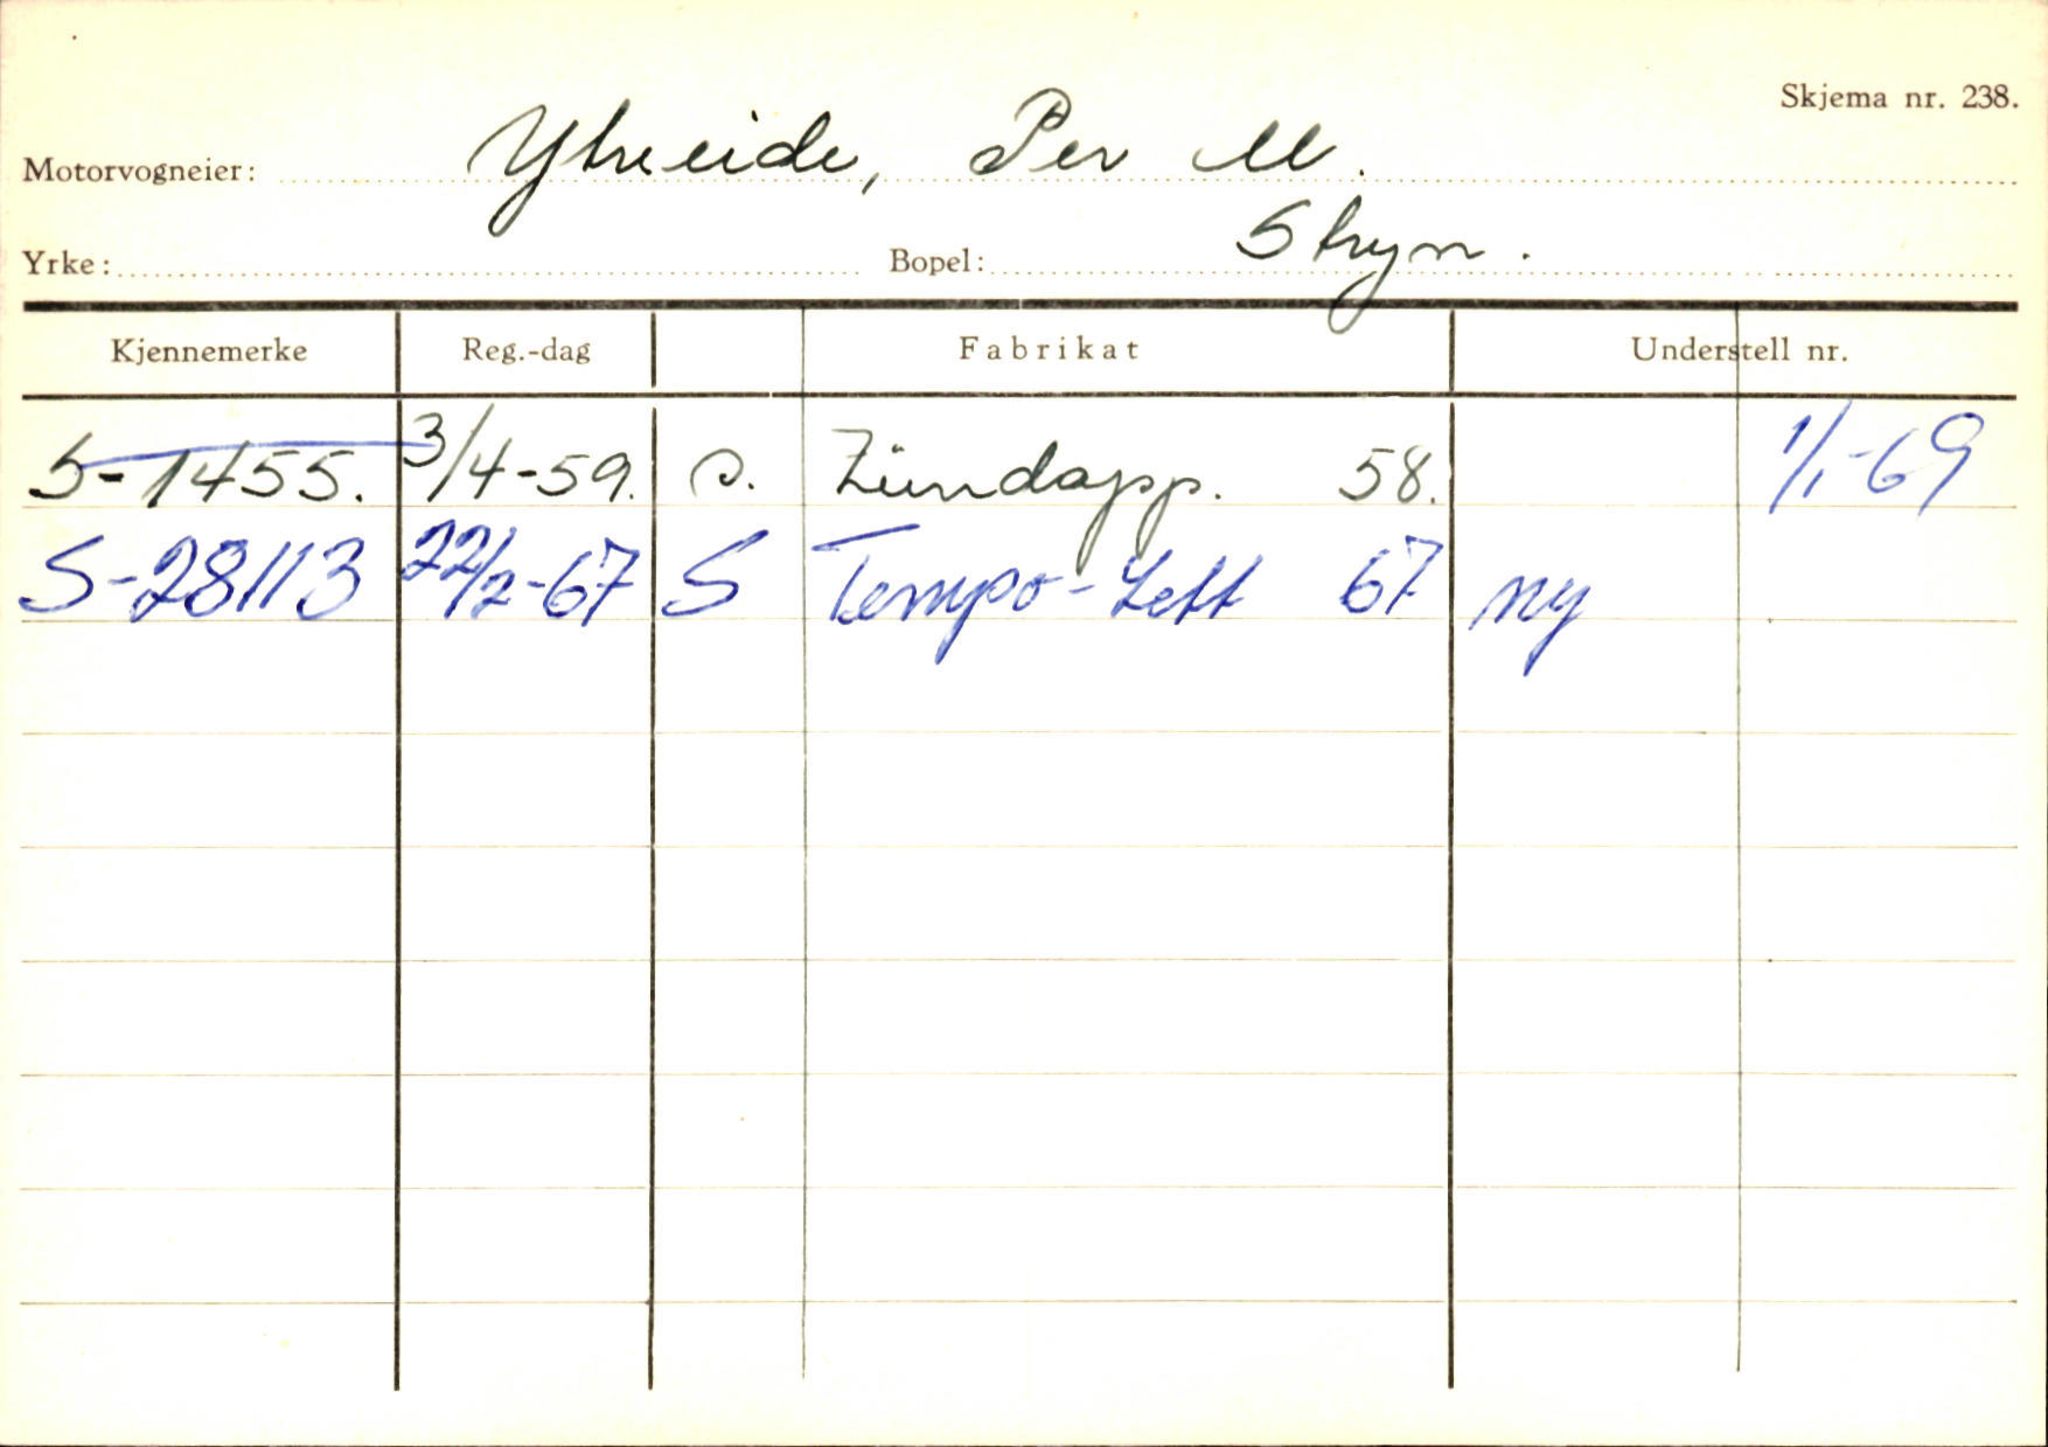 Skjema nr. 238.
Motorvogneier: Ytreeide, Per M.
Yrke: Bopel: Stryn.
Kjennemerke Reg.-dag Fabrikat Understell nr.
S-1455. 3/4-59. s. Zündapp. 58. 1/1-69
S-28113 22/2-67 S Tempo-Lett 67 ny